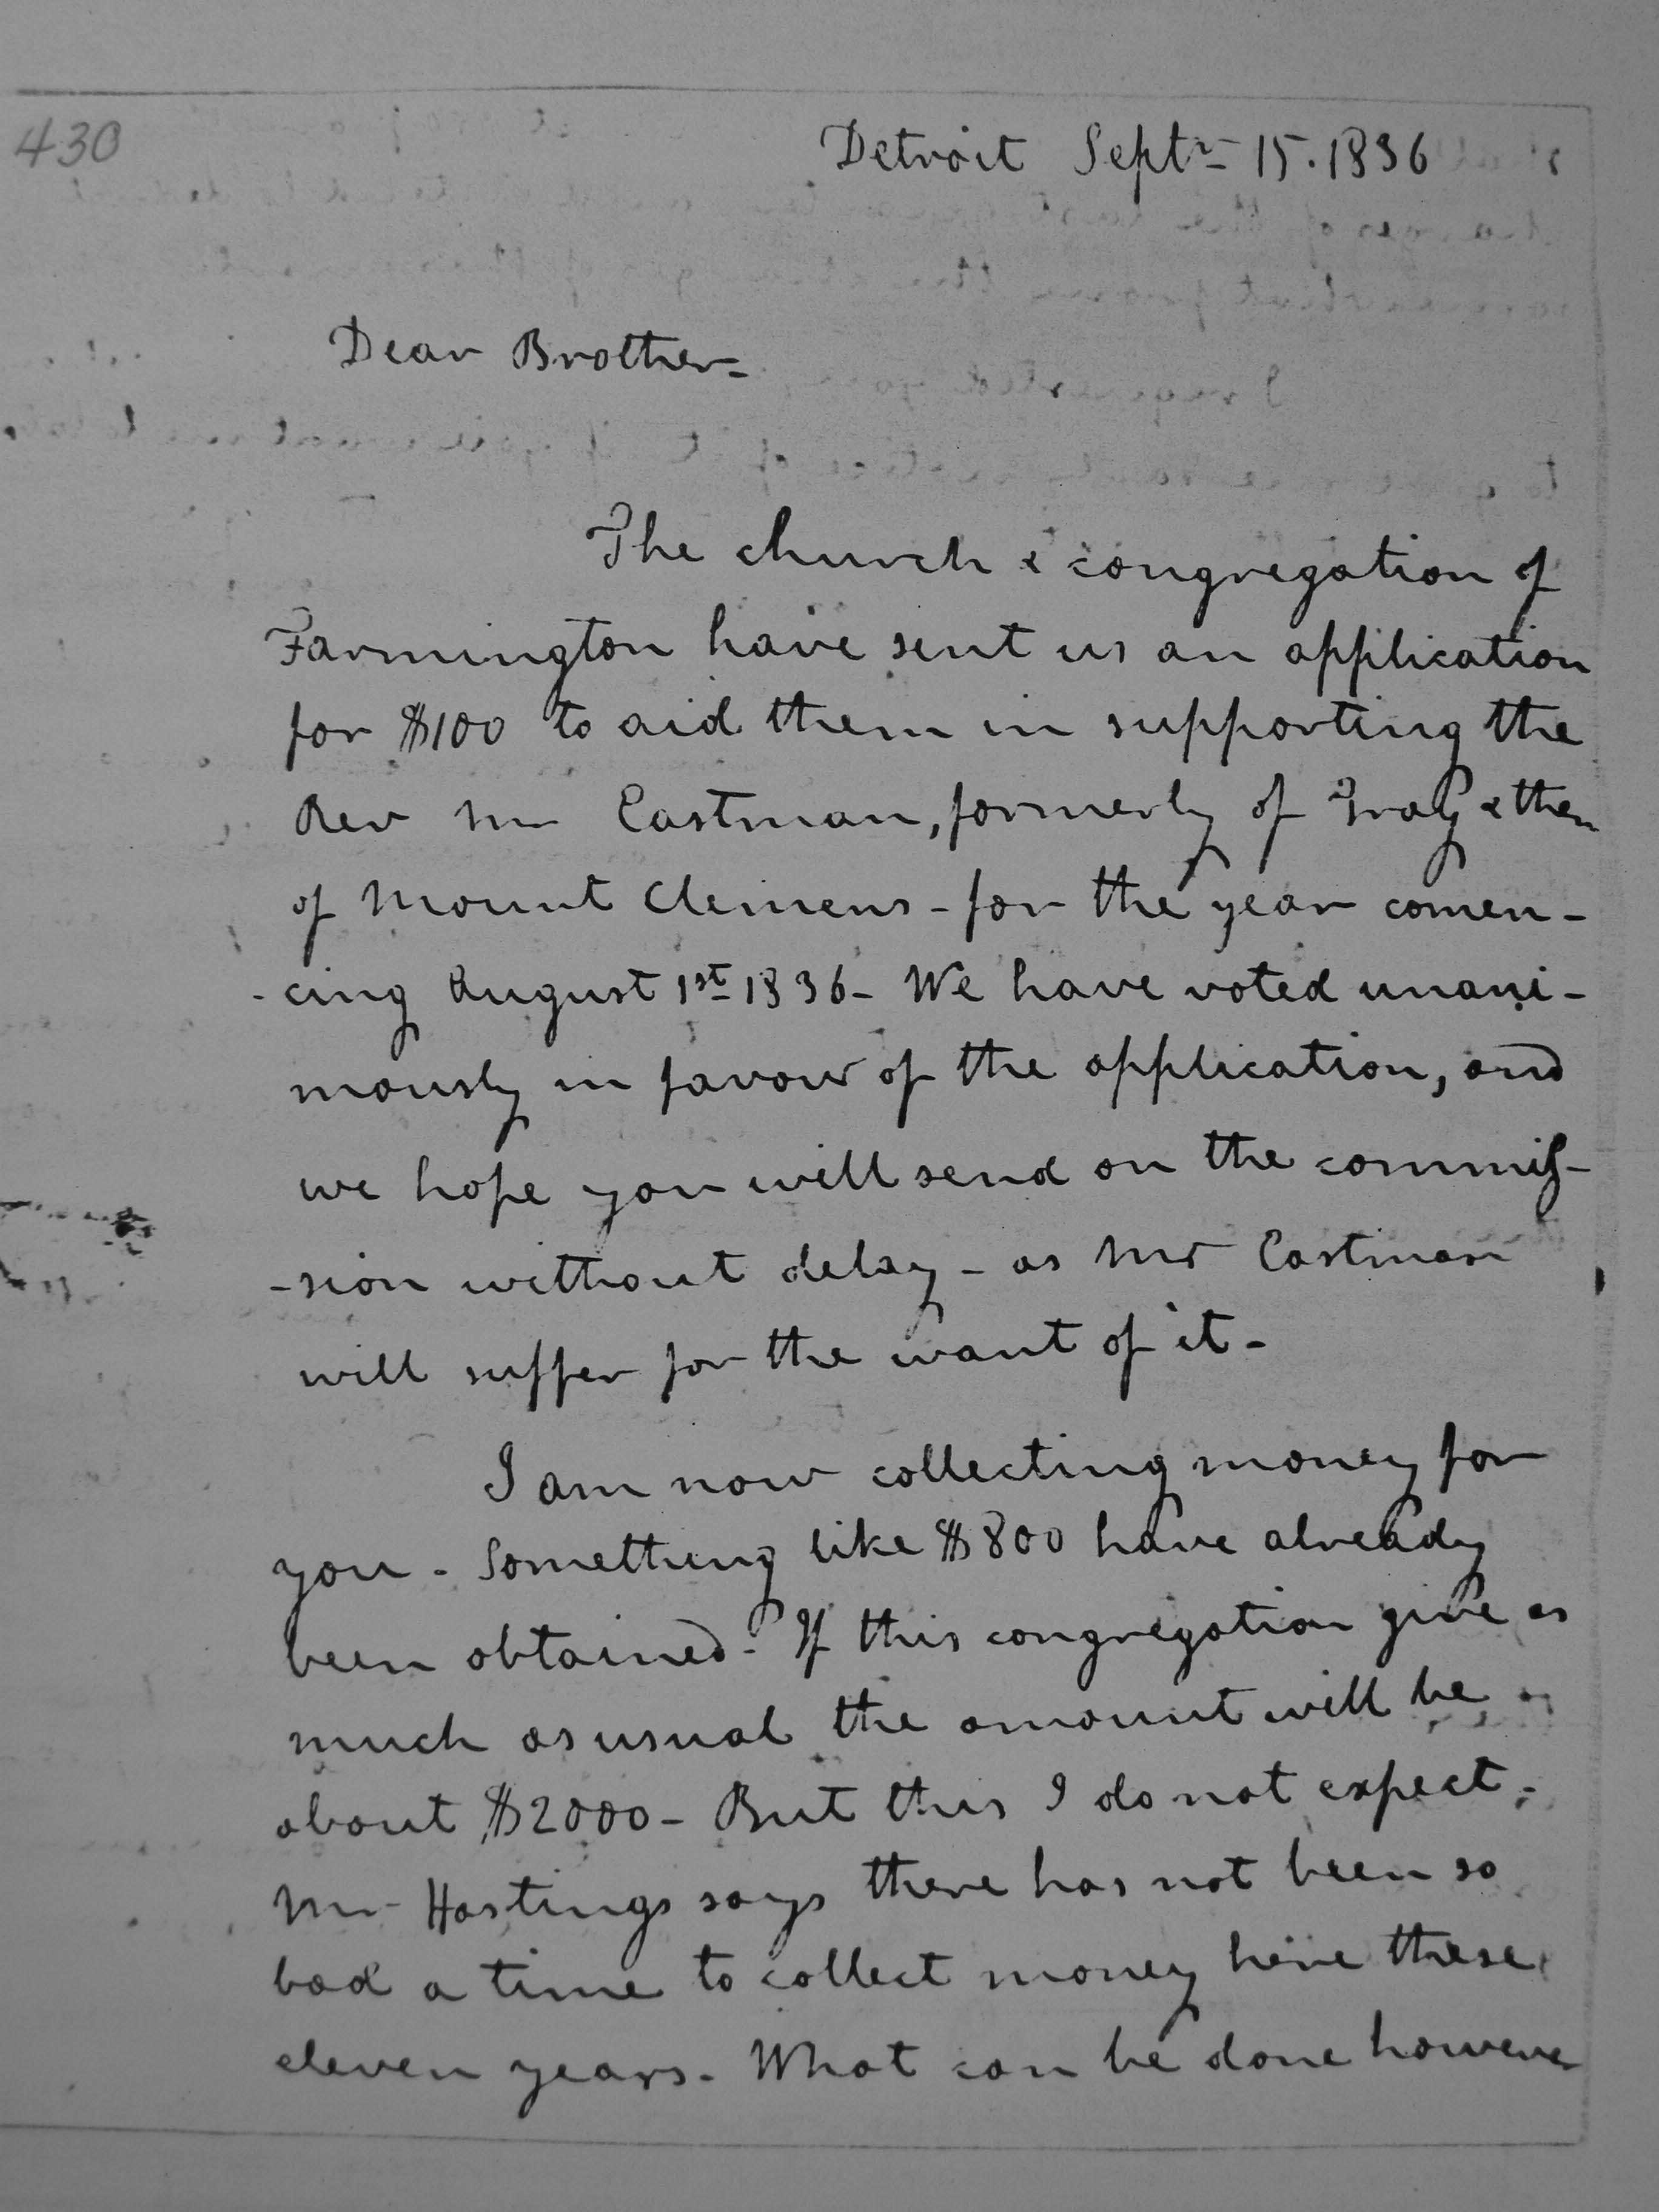 430
Detroit Septr 15. 1836
Dear Brother-
The church & congregation of
Farmington have sent us an application
for $100 to aid them in supporting the
Rev Mr Eastman, formerly of Troy & then
of Mount Clemens - for the year comen-
-cing August 1st 1836 - We have voted unani-
mously in favour of the application, and
we hope you will send on the commis-
-sion without delay - as Mr Eastman
will suffer for the want of it -
I am now collecting money for
you - Something like $800 have already
been obtained - If this congregation give as
much as usual the amount will be
about $2000 - But this I do not expect -
Mr Hastings says there has not been so
bad a time to collect money here these
eleven years - What can be done however